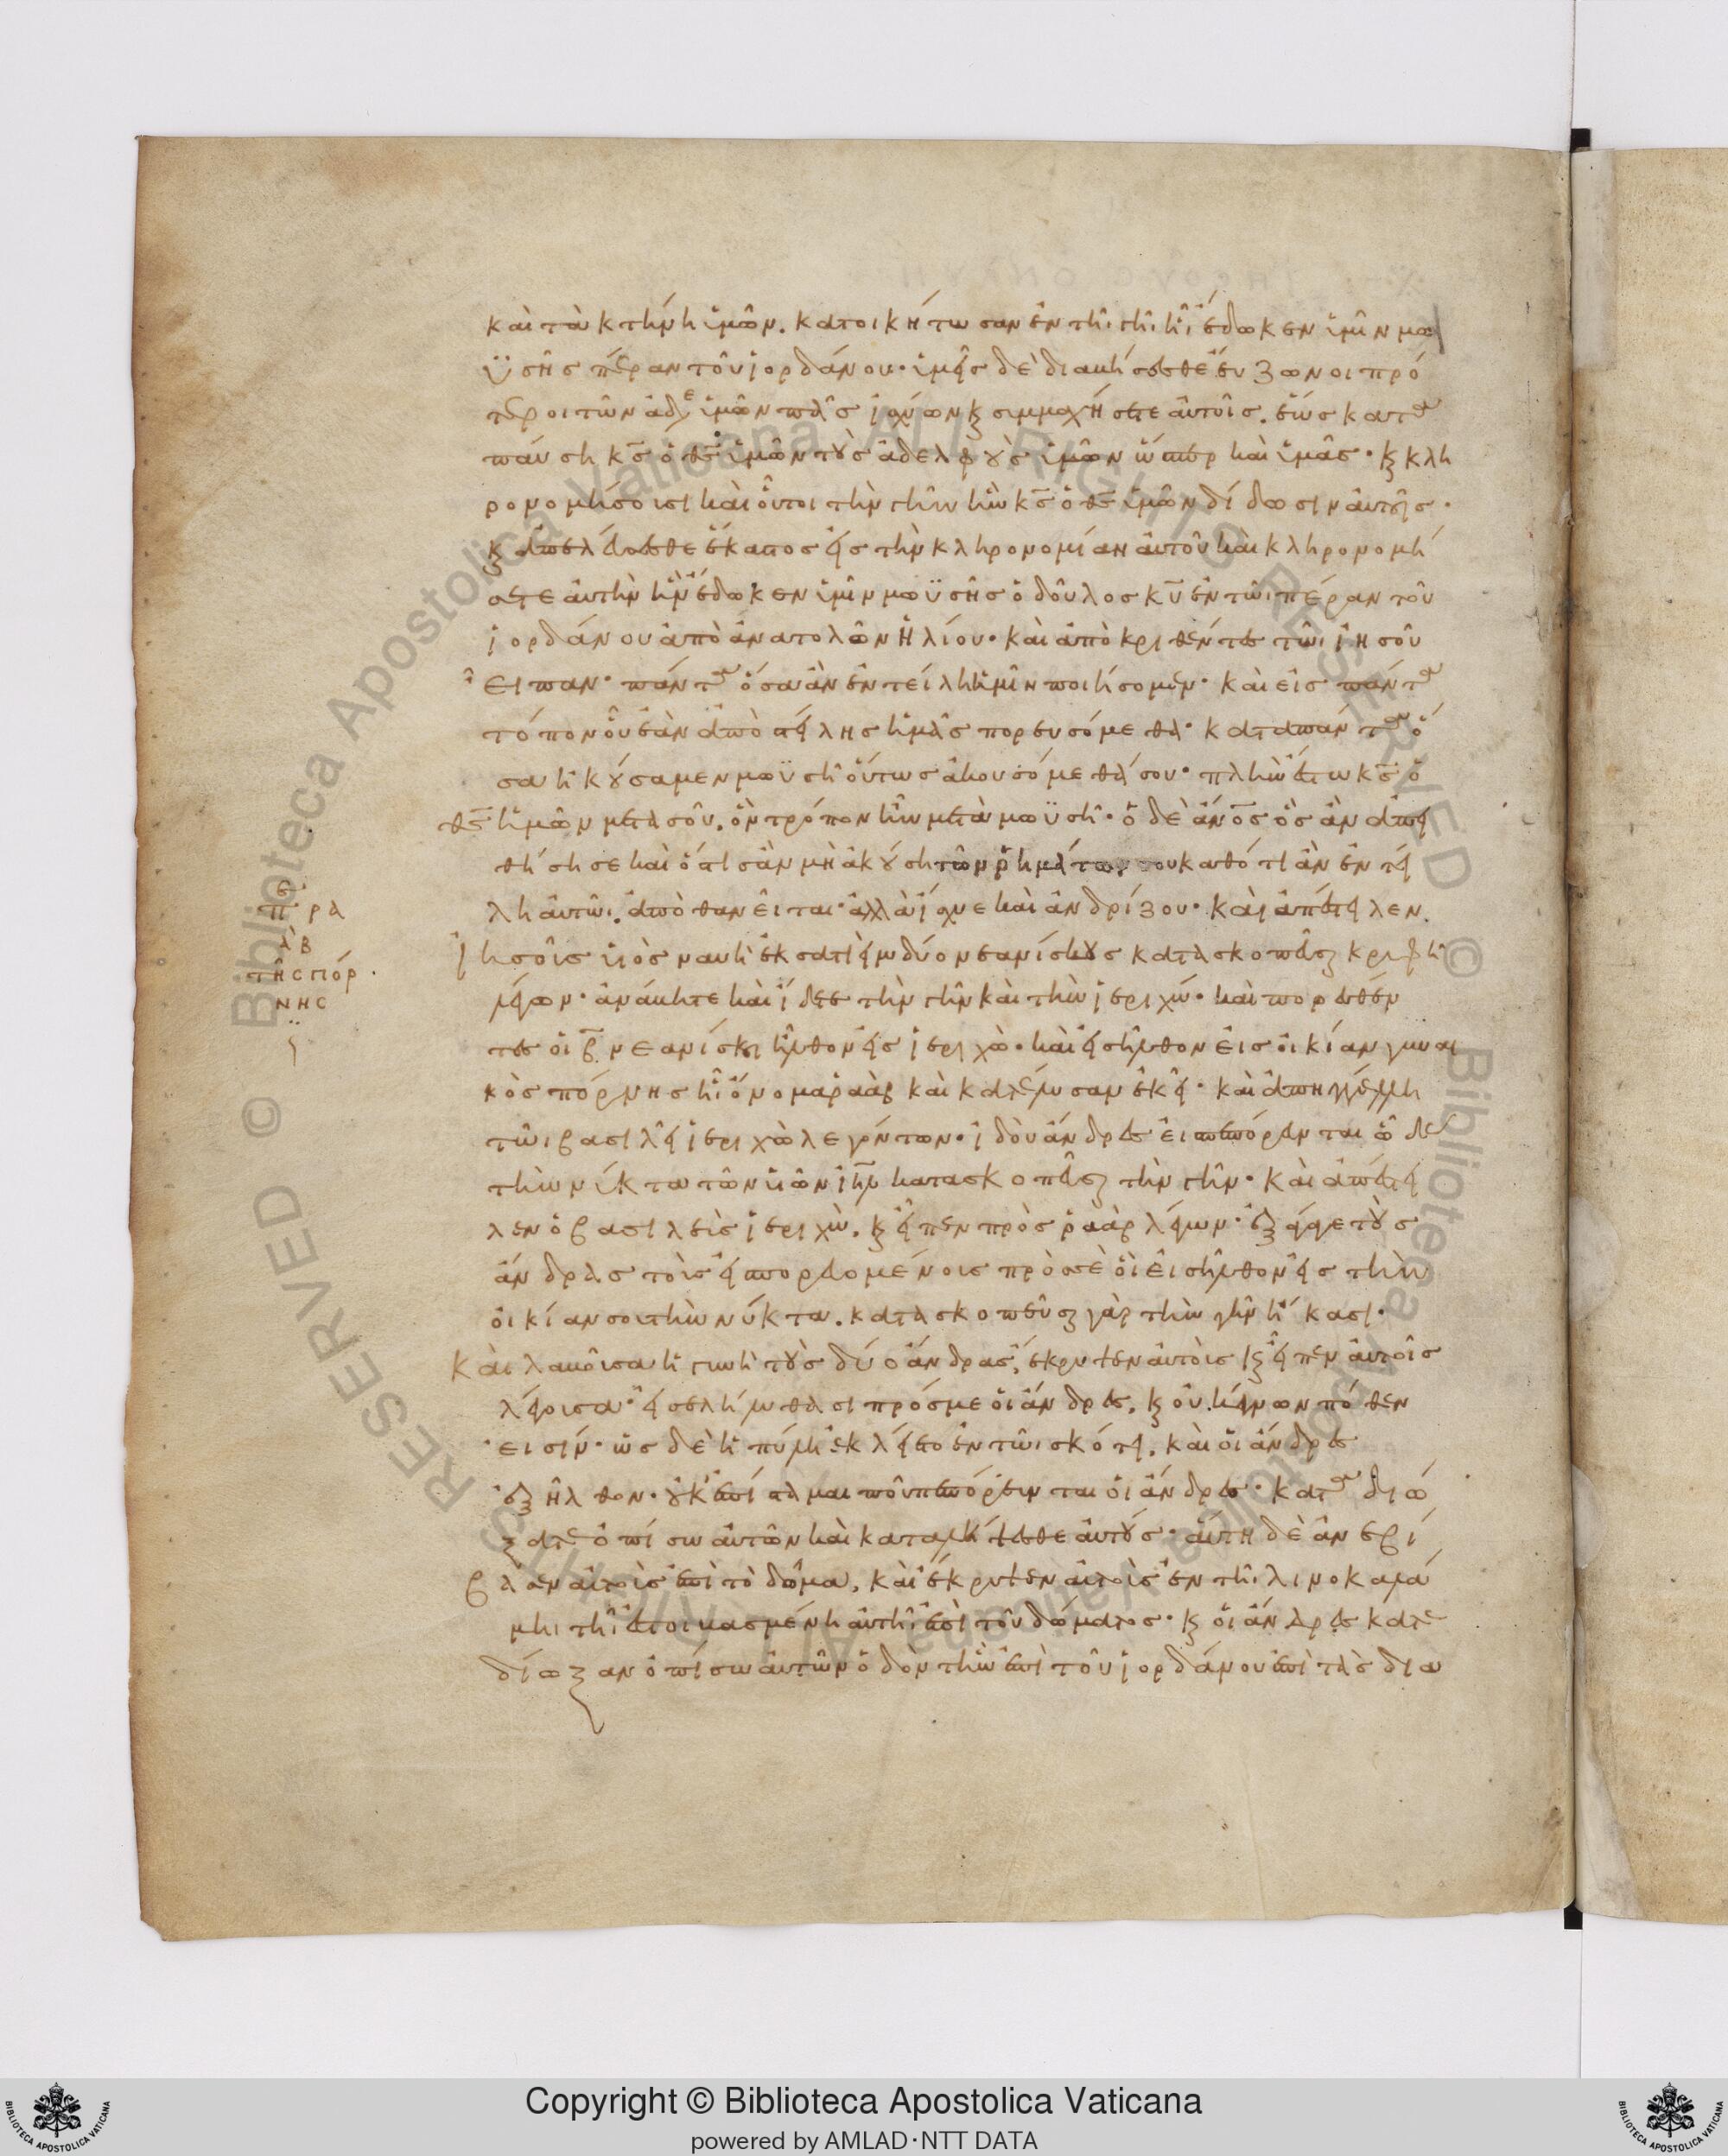 καὶ τὰ κτήνη ὑμῶν. κατοικήτωσαν ἐν τῆι γῆι ἧι ἔδωκεν ὑμῖν μω
ϋσῆς πέραν τοῦ ἰορδάνου· ὑμεῖς δὲ διαβήσεσθε εὔζωνοι πρό
τεροι τῶν ἀδελ ὑμῶν πᾶς ἰσχύων κ συμμαχήσετε αὐτοῖς. ἕως κατα
παύση κς ὁ θς ὑμῶν τοὺς ἀδελφοὺς ὑμῶν ὥσπερ καὶ ὑμᾶς· κ κλη
ρονομήσουσι καὶ οὗτοι τὴν γῆν ἣν κς ὁ θς ὑμῶν δίδωσιν αὐτοῖς·
κ ἀπελεύσεσθε ἕκαστος εἰς τὴν κληρονομίαν αὐτοῦ καὶ κληρονομή
σετε αὐτὴν ἣν ἔδωκεν ὑμῖν μωϋσῆς ὁ δοῦλος κυ ἐν τῶι πέραν τοῦ
ἰορδάνου ἀπὸ ἀνατολῶν ἡλίου· καὶ ἀποκριθέντες τῶι ἰησοῦ
εἶπαν· πάντα ὅσα ἂν ἐντείλη ἡμῖν ποιήσομεν· καὶ εἰς πάντα
τόπον οὗ ἐὰν ἀποστείλης ἡμᾶς πορευσόμεθα· κατὰ πάντα ὅ
σα ἠκούσαμεν μωϋσῆ οὕτως ἀκουσόμεθά σου· πλὴν ἔστω κς ὁ
θς ἡμῶν μετὰ σοῦ. ὃν τρόπον ἦν μετὰ μωϋσῆ· ὁ δὲ ἄνος ὃς ἂν ἀπει
θήση σε καὶ ὅστις ἂν μὴ ἀκούση τῶν ῥημάτων σου καθότι ἂν ἐντεί
λη αὐτῶι. ἀποθανεῖται· ἀλλὰ ἴσχυε καὶ ἀνδρίζου· καὶ ἀπέστειλεν
ἰησοῦς υἱὸς ναυὴ ἐκ σαττεὶν δύο νεανίσκους κατασκοπεῦσαι κρυφῆ
λέγων· ἀνάβητε καὶ ἴδετε τὴν γῆν καὶ τὴν ἰεριχώ· καὶ πορευθέν
τες οἱ β νεανίσκοι ἦλθον εἰς ἰεριχὼ· καὶ εἰσῆλθον εἰς οἰκίαν γυναι
κὸς πόρνης ἧι ὄνομα ῥαὰβ καὶ κατέλυσαν ἐκεῖ· καὶ ἀπηγγέλη
τῶι βασιλεῖ ἰεριχὼ λεγόντων· ἰδοὺ ἄνδρες εἰσπεπόρευνται ὧδε
τὴν νύκτα τῶν υἱῶν ιηλ κατασκοπεῦσαι τὴν γῆν· καὶ ἀπέστει
λεν ὁ βασιλεὺς ἰεριχὼ. κ εἶπεν πρὸς ῥαὰβ λέγων· ἐξάγαγε τοὺς
ἄνδρας τοὺς εἰσπορευομένους πρὸς σὲ οἳ εἰσῆλθον εἰς τὴν
οἰκίαν σου τὴν νύκτα. κατασκοπεῦσαι γὰρ τὴν γῆν ἥκασι·
καὶ λαβοῦσα ἡ γυνὴ τοὺς δύο ἄνδρας, ἔκρυψεν αὐτοὺς κ εἶπεν αὐτοῖς
λέγουσα· εἰσεληλύθασι πρός με οἱ ἄνδρες. κ οὐ γινώσκω πόθεν
εἰσίν· ὡς δὲ ἡ πύλη ἐκλείετο ἐν τῶι σκότει, καὶ οἱ ἄνδρες
ἐξῆλθον· οὐκ ἐπίσταμαι ποῦ πεπόρευνται οἱ ἄνδρες· καταδιώ
ξατε ὀπίσω αὐτῶν καὶ καταλήψεσθε αὐτούς· αὕτη δὲ ἀνεβί
βασεν αὐτοὺς ἐπὶ τὸ δῶμα, καὶ ἔκρυψεν αὐτοὺς ἐν τῆι λινοκαλά
μηι τῆι ἐστοιβασμένη αὐτῆι ἐπὶ τοῦ δώματος· κ οἱ ἄνδρες κατε
δίωξαν ὀπίσω αὐτῶν ὁδὸν τὴν ἐπὶ τοῦ ἰορδάνου ἐπὶ τὰς δια
πε ρα
ὰβ
τῆς πόρ
νης
Copyright © Biblioteca Apostolica Vaticana
powered by AMLAD·NTT DATA